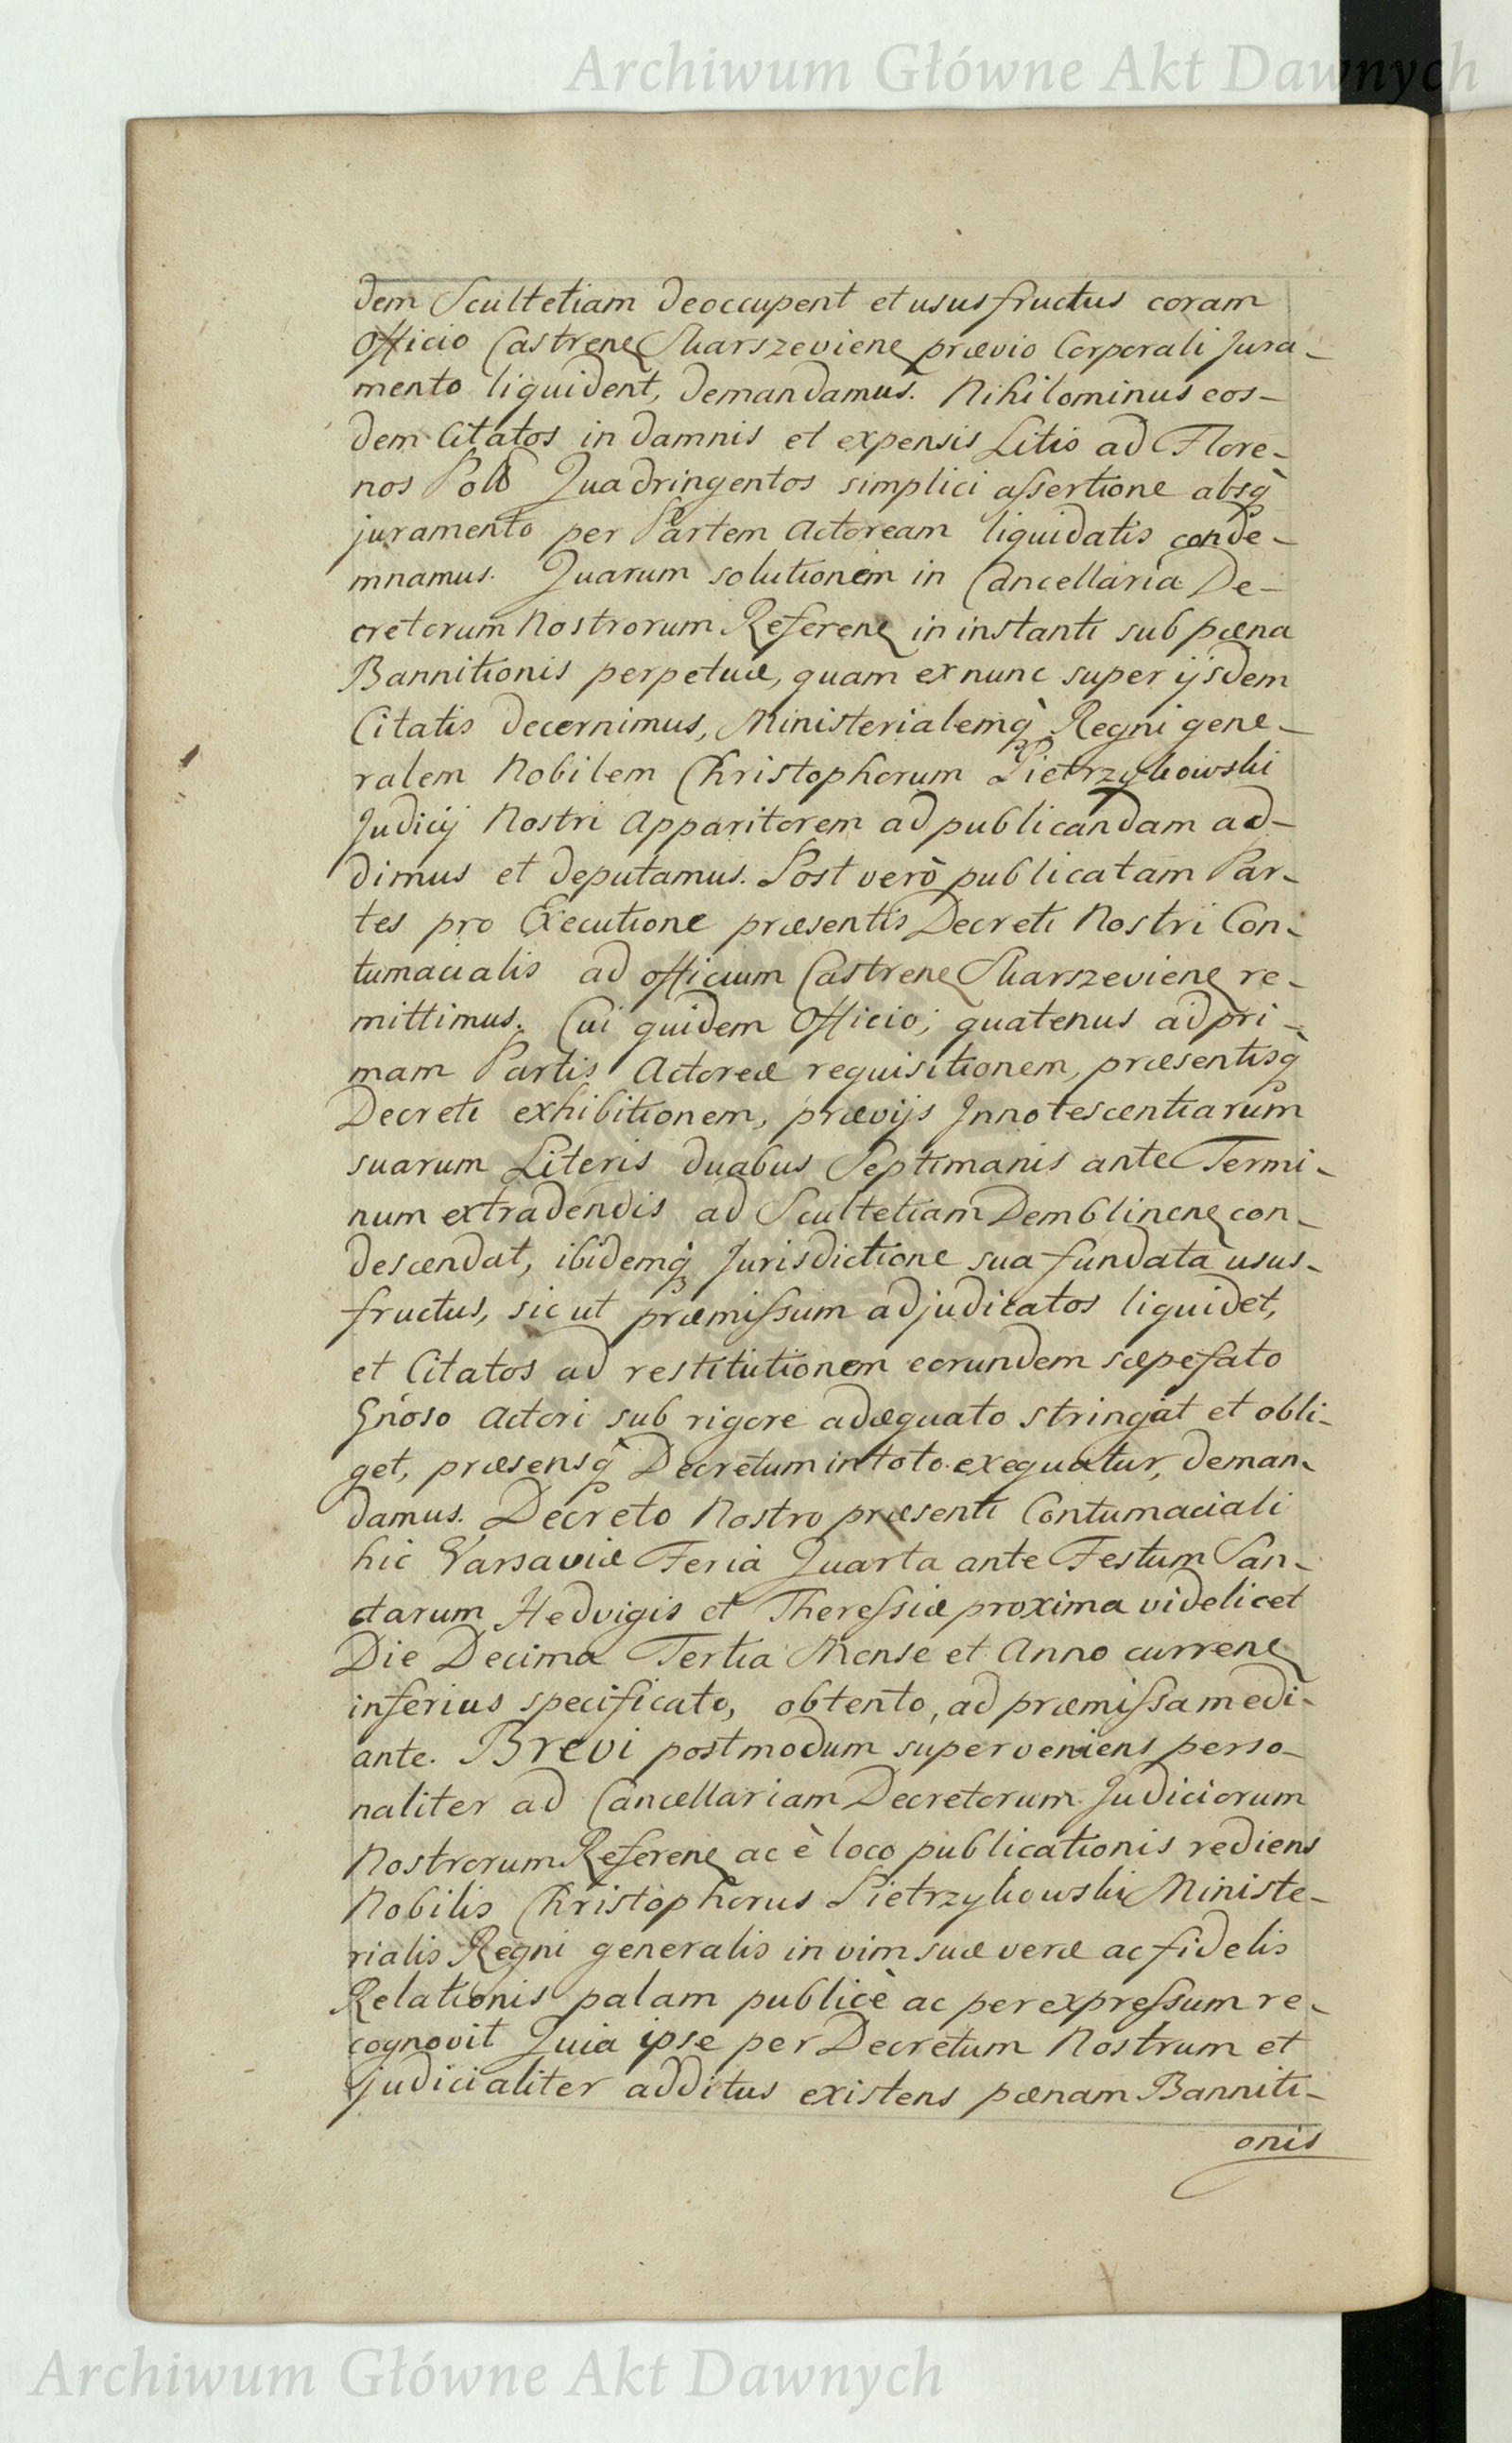 Archiwum Główne Akt Dawnych
dem Scultetiam deoccupent et ususfructus coram
Officio Castrenę Skarszevienę prævio Corporali Jura-
mento liquident, demandamus. Nihilominus eos-
dem Citatos in damnis et expensis Litis ad Flore-
nos Quadringentos simplici assertione absq̀
juramento per Partem Actoream liquidatis conde-
mnamus. Quarum solutionem in Cancellaria De-
cretorum Nostrorum Referenę in instanti sub pæna
Bannitionis perpetuæ, quam ex nunc super ijsdem
Citatis decernimus, Ministerialemq̀ Regni gene-
ralem Nobilem Christophorum Pietrzykowski
Judicij Nostri Apparitorem ad publicandam ad-
dimus et deputamus. Post verò publicatam Par-
tes pro Executione præsentis Decreti Nostri Con-
tumacialis ad officium Castrenę Skarszevienę re-
mittimus. Cui quidem Officio; quatenus ad pri-
mam Partis Actoreæ requisitionem, præsentisq̀
Decreti exhibitionem, prævijs Innotescentiarum
suarum Literis duabus Septimanis ante Termi-
num extradendis ad Scultetiam Demblinenę con-
descendat, ibidemq̀ Jurisdictione sua fundata usus-
fructus, sicut præmissum adjudicatos liquidet,
et Citatos ad restitutionem eorundem sæpefato
Gnoso Actori sub rigore adæquato stringat et obli-
get, præsensq̀ Decretum in toto exequatur, deman-
damus. Decreto Nostro præsenti Contumaciali
hic Varsaviæ Feria Quarta ante Festum San-
ctarum Hedvigis et Theressiæ proxima videlicet
Die Decima Tertia Mense et Anno currenę
inferius specificato, obtento, ad præmissa medi-
ante. Brevi postmodum superveniens perso-
naliter ad Cancellariam Decretorum Judiciorum
Nostrorum Referenę ac è loco publicationis rediens
Nobilis Christophorus Pietrzykowski Ministe-
rialis Regni generalis in vim suæ veræ ac fidelis
Relationis palam publicè ac per expressum re-
cognovit Quia ipse per Decretum Nostrum et
judicialiter additus existens pænam Banniti-
onis
Archiwum Główne Akt Dawnych